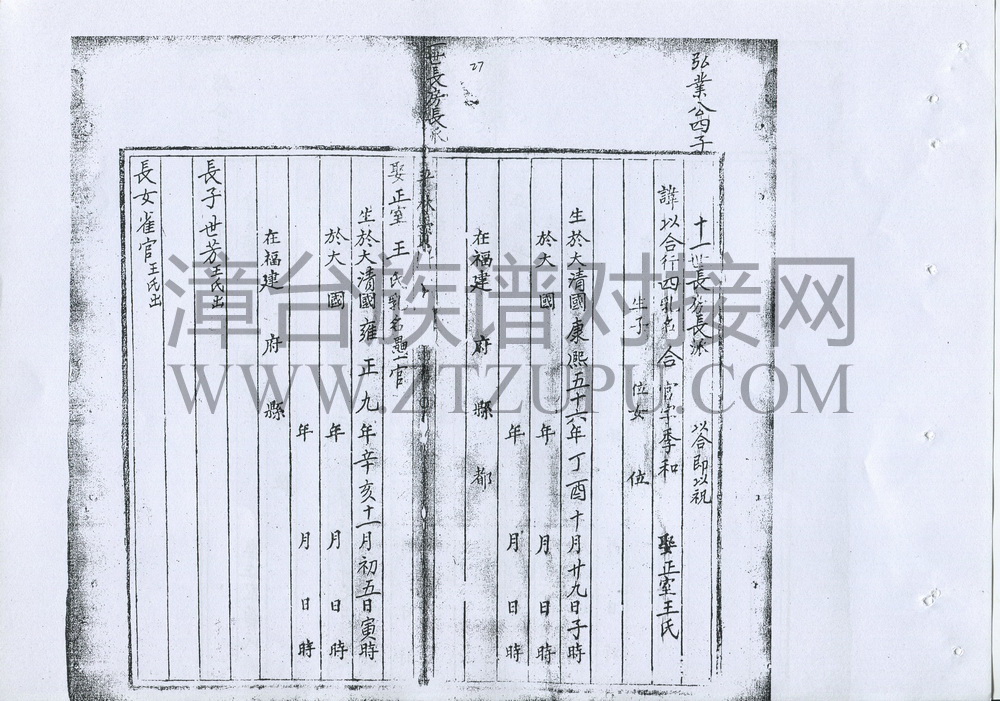 弘業公四子
27
十一世長房長派 以合即以祝
諱以合行四乳名 合 官字季和 娶正室王氏
生子 位女 位
生於大清國康熙五十六年丁酉十月廿九日子時
於大 國 年 月 日 時
年 月 日 時
在福建 府 縣 都
世長房長派
娶正室 王 氏乳名 官
生於大清國雍正九年辛亥十一月初五日寅時
於大 國 年 月 日 時
年 月 日 時
在福建 府 縣
長子世芳王氏出
長女雀官王氏出
漳台族谱对接网
WWW.ZTZUPU.COM